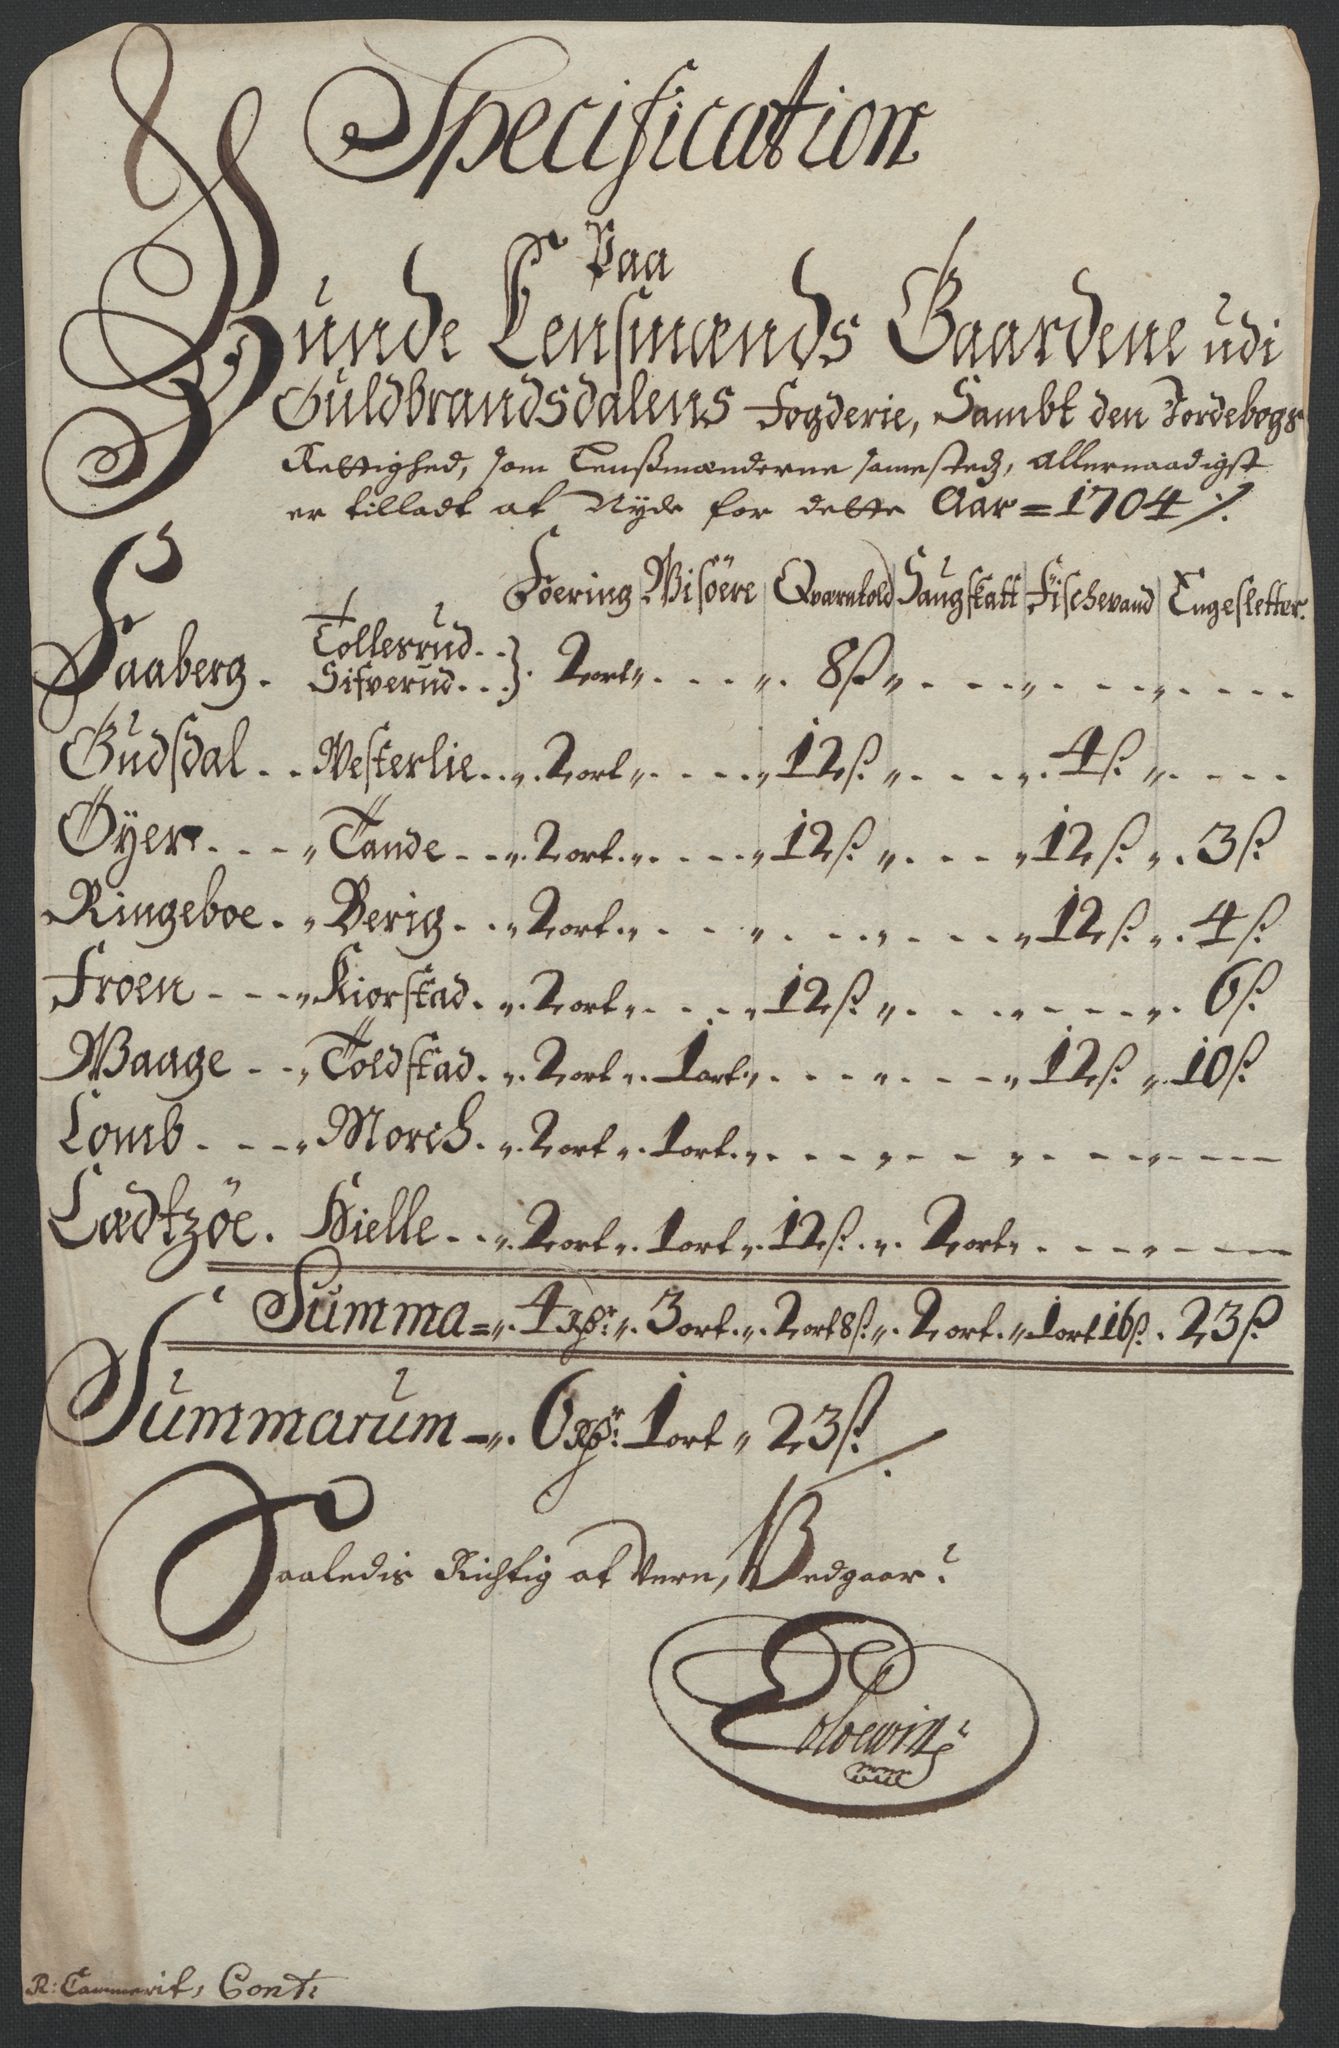 Specification
Paa
Bunde Lensmænds Gaardene udi
Guldbrandsdalens Fogderie, Sambt den Jordebogs
Rettighed, som Lensmænderne sammesteds, allernaadigst
er tilladt at Nyde for dette Aar = 1704 ./.
Foering Wisöere Qværntold Saugskatt Fischevand Engesletter
Faaberg . Tollersrud . . Sifverud . . . } . 2 ort „ . . . „ . 8 ß „ . . . . . . . .
Gudsdal . . Westerlie . . „ . 2 ort „ . . . . „ 12 ß . „ . . . „ . 4 ß . „ . . . .
Öÿer . . . „ Tande . . . „ . 2 ort . „ . . . . „ 12 ß . „ . . . . „ 12 ß . „ . 3 ß .
Ringeboe . „ Berig . . . „ . 2 ort . „ . . . „ . . . „ . . . . „ 12 ß . „ . 4 ß .
Froen . . . „ Kiorstad . „ . 2 ort „ . . . . „ 12 ß . „ . . . „ . . . . „ . 6 ß .
Waage . . „ Toldstad . „ . 2 ort „ . 1 ort . „ . . . . „ . . . . „ 12 ß . „ . 10 ß .
Lomb . . . „ Morch . „ . 2 ort „ . 1 ort . „ . . . . „ . . . „ . . . „ . . .
Lædtzöe . Hielle . . „ . 2 ort „ . 1 ort „ . 12 ß . „ . 2 ort „ . . . . „ . . .
Summa = „ . 4 Rdr „ . 3 ort . „ . 2 ort 8 ß . „ . 2 ort . „ 1 ort 16 ß . 23 ß .
Summarum = „ . 6 Rdr . 1 ort „ 23 ß . /.
Saaledis Richtig at Være, Bedgaar
R: Cammerit, Cont: